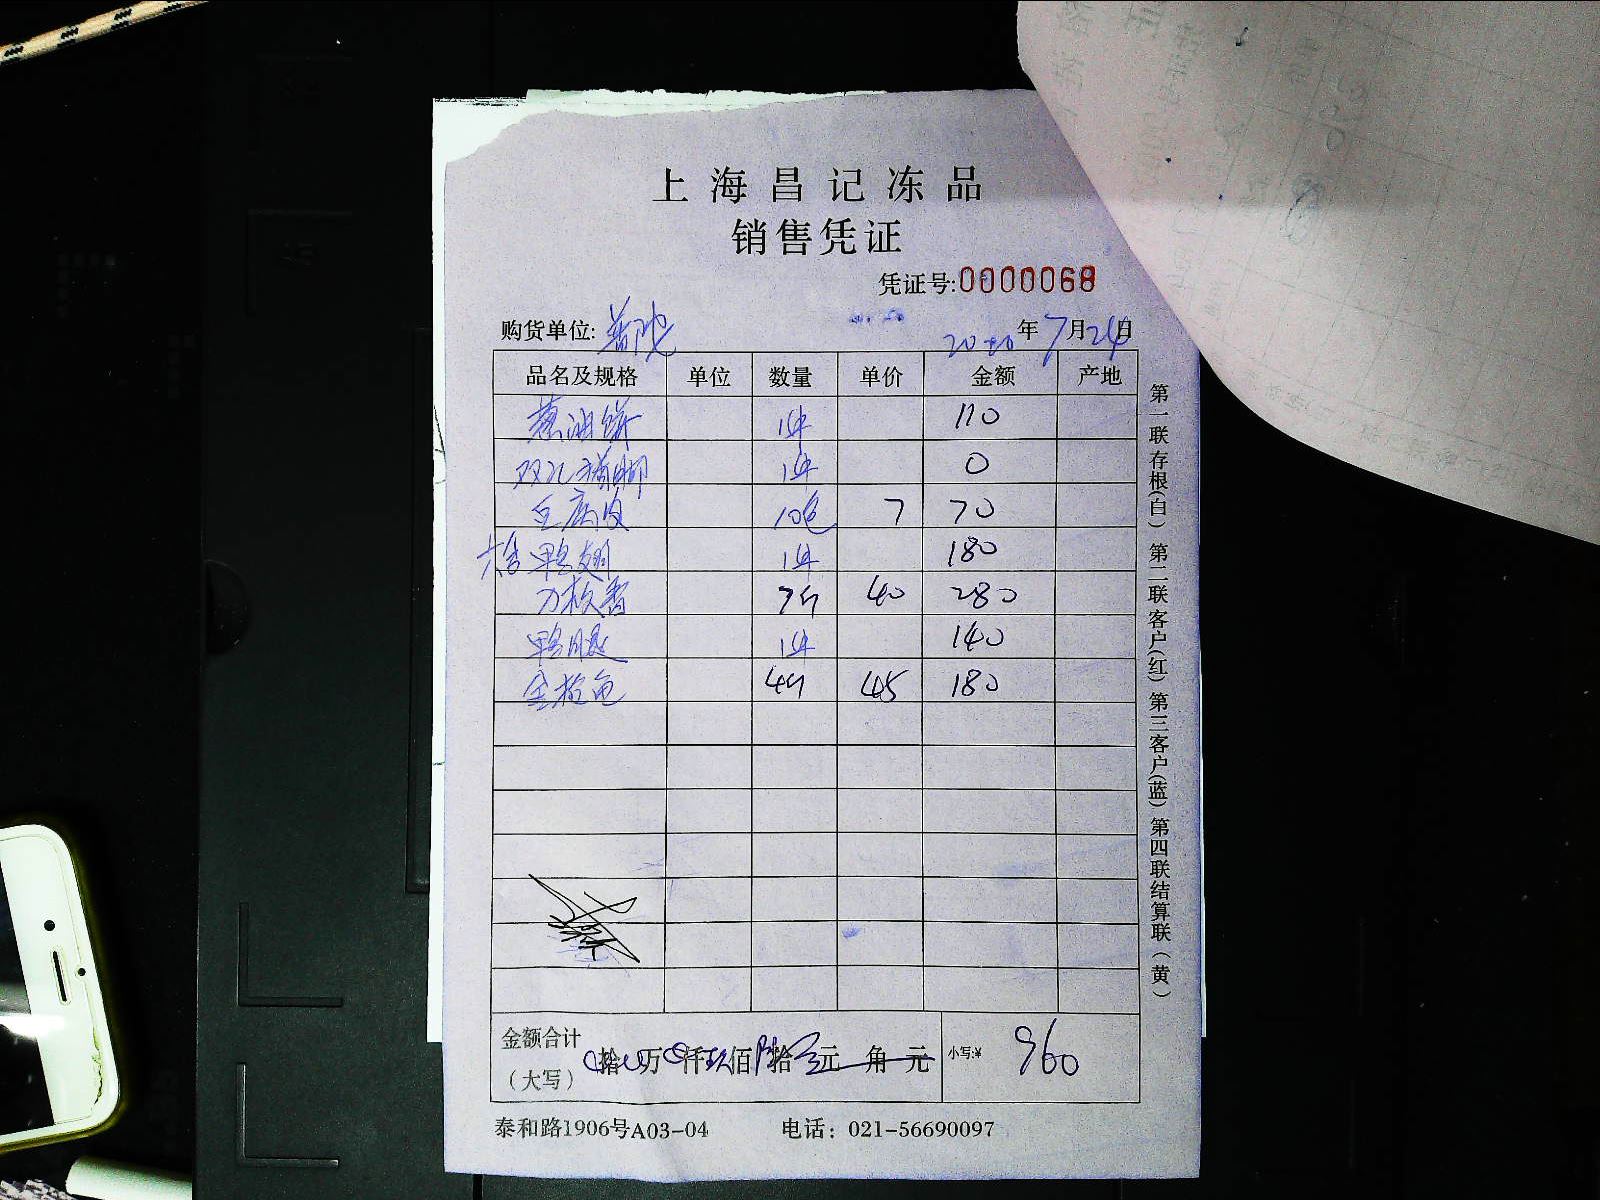 上海昌记冻品
销售凭证
凭证号:0000068
购货单位: 普陀 2020年7月24日
品名及规格 单位 数量 单价 金额 产地
葱油饼 1件 110
双汇猪脚 1件 0
豆腐皮 10包 7 70
六合鸭翅 1件 180
千枚香 7斤 40 280
鸭腿 1件 140
金枪鱼 4斤 45 180
金额合计
(大写) 拾 万 仟玖佰陆拾 元 角 元 小写:¥ 960
泰和路1906号A03-04 电话: 021-56690097
第一联存根(白) 第二联客户(红) 第三客户(蓝) 第四联结算联(黄)